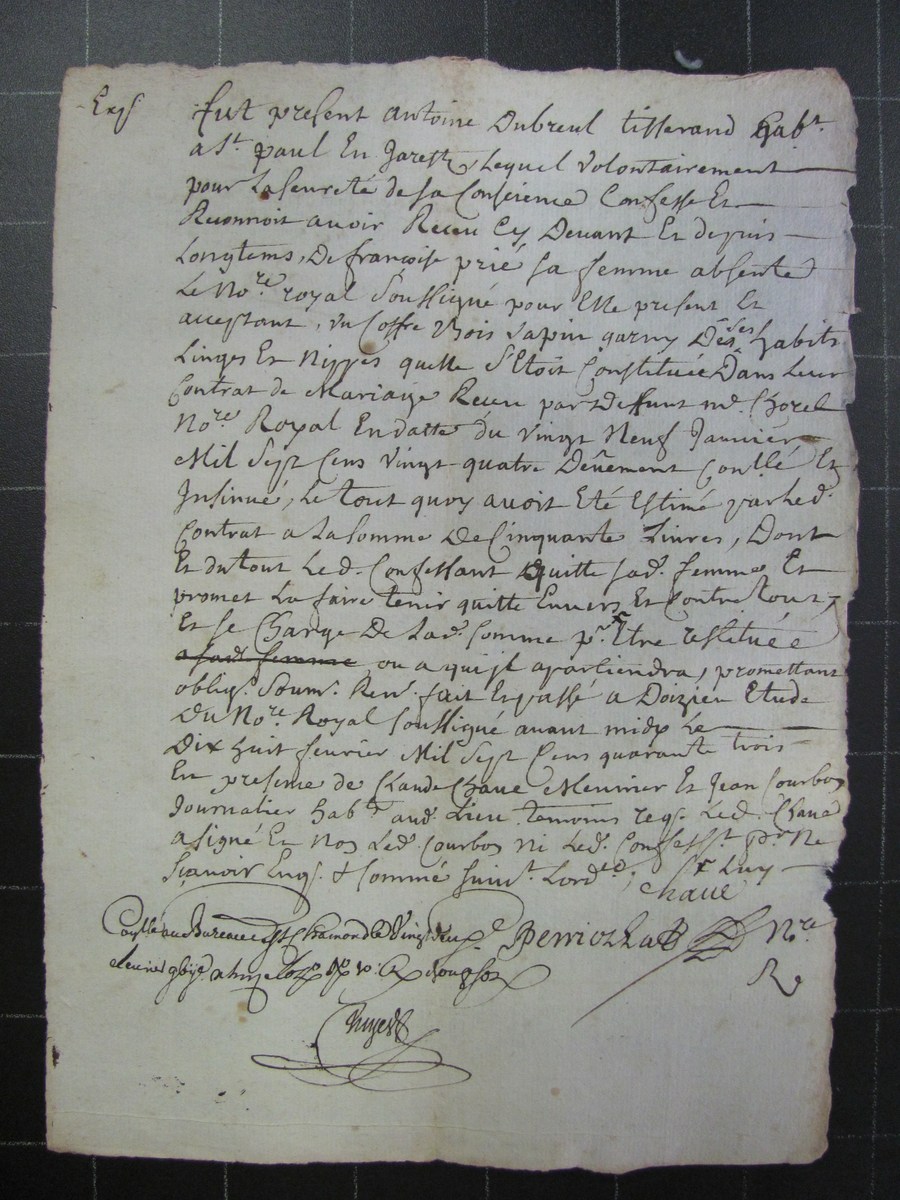 Exp.
fut present antoine Dubreul tisserand habt.
a St. paul En Jarest, Lequel Volontairement
pour La seureté de sa Conscience Confesse Et
Reconnoit avoir Receu Cy Devant Et depuis
Longtems, De françoise prié sa femme absente
Le Nore. royal Soussigné pour Elle present Et
acceptant, un Coffre Bois sapin garny De ses habits
Linges Et Nippes quelle s'Etoit Constituée Dans Leur
Contrat de Mariage Receu par Deffunt me. Chorel
Nore. Royal En datte du vingt Neuf Janvier
Mil Sept Cens vingt quatre Deüement conllé Et
Insinué, Le tout quoy avoit Eté Estimé par Led.
Contrat a La somme De Cinquante Livres, Dont
Et du tout Led. Confessant quitte sad. femme Et
promet La faire tenir quitte Envers Et Contre tous,
Et se Charge De Lad. somme pr. Etre restituée
a sad. femme ou a qui il apartiendra, promettant
oblig. Soum. Ren. fait Et passé a Doizieu Etude
Du Nore. Royal soussigné avant midy Le
Dix huit fevrier Mil Sept Cens quarante trois
En presence de Claude Chave Meunier Et Jean Courbon
Journalier habts. aud. Lieu temoins req. Led. Chave
a signé Et non Led. Courbon ni Led. Confesst. pr. Ne
Sçavoir Enq. & sommé suivt. Lord.
Chave
au Bureau de St Chamond le Vingt deux
Nre
R
fevrier